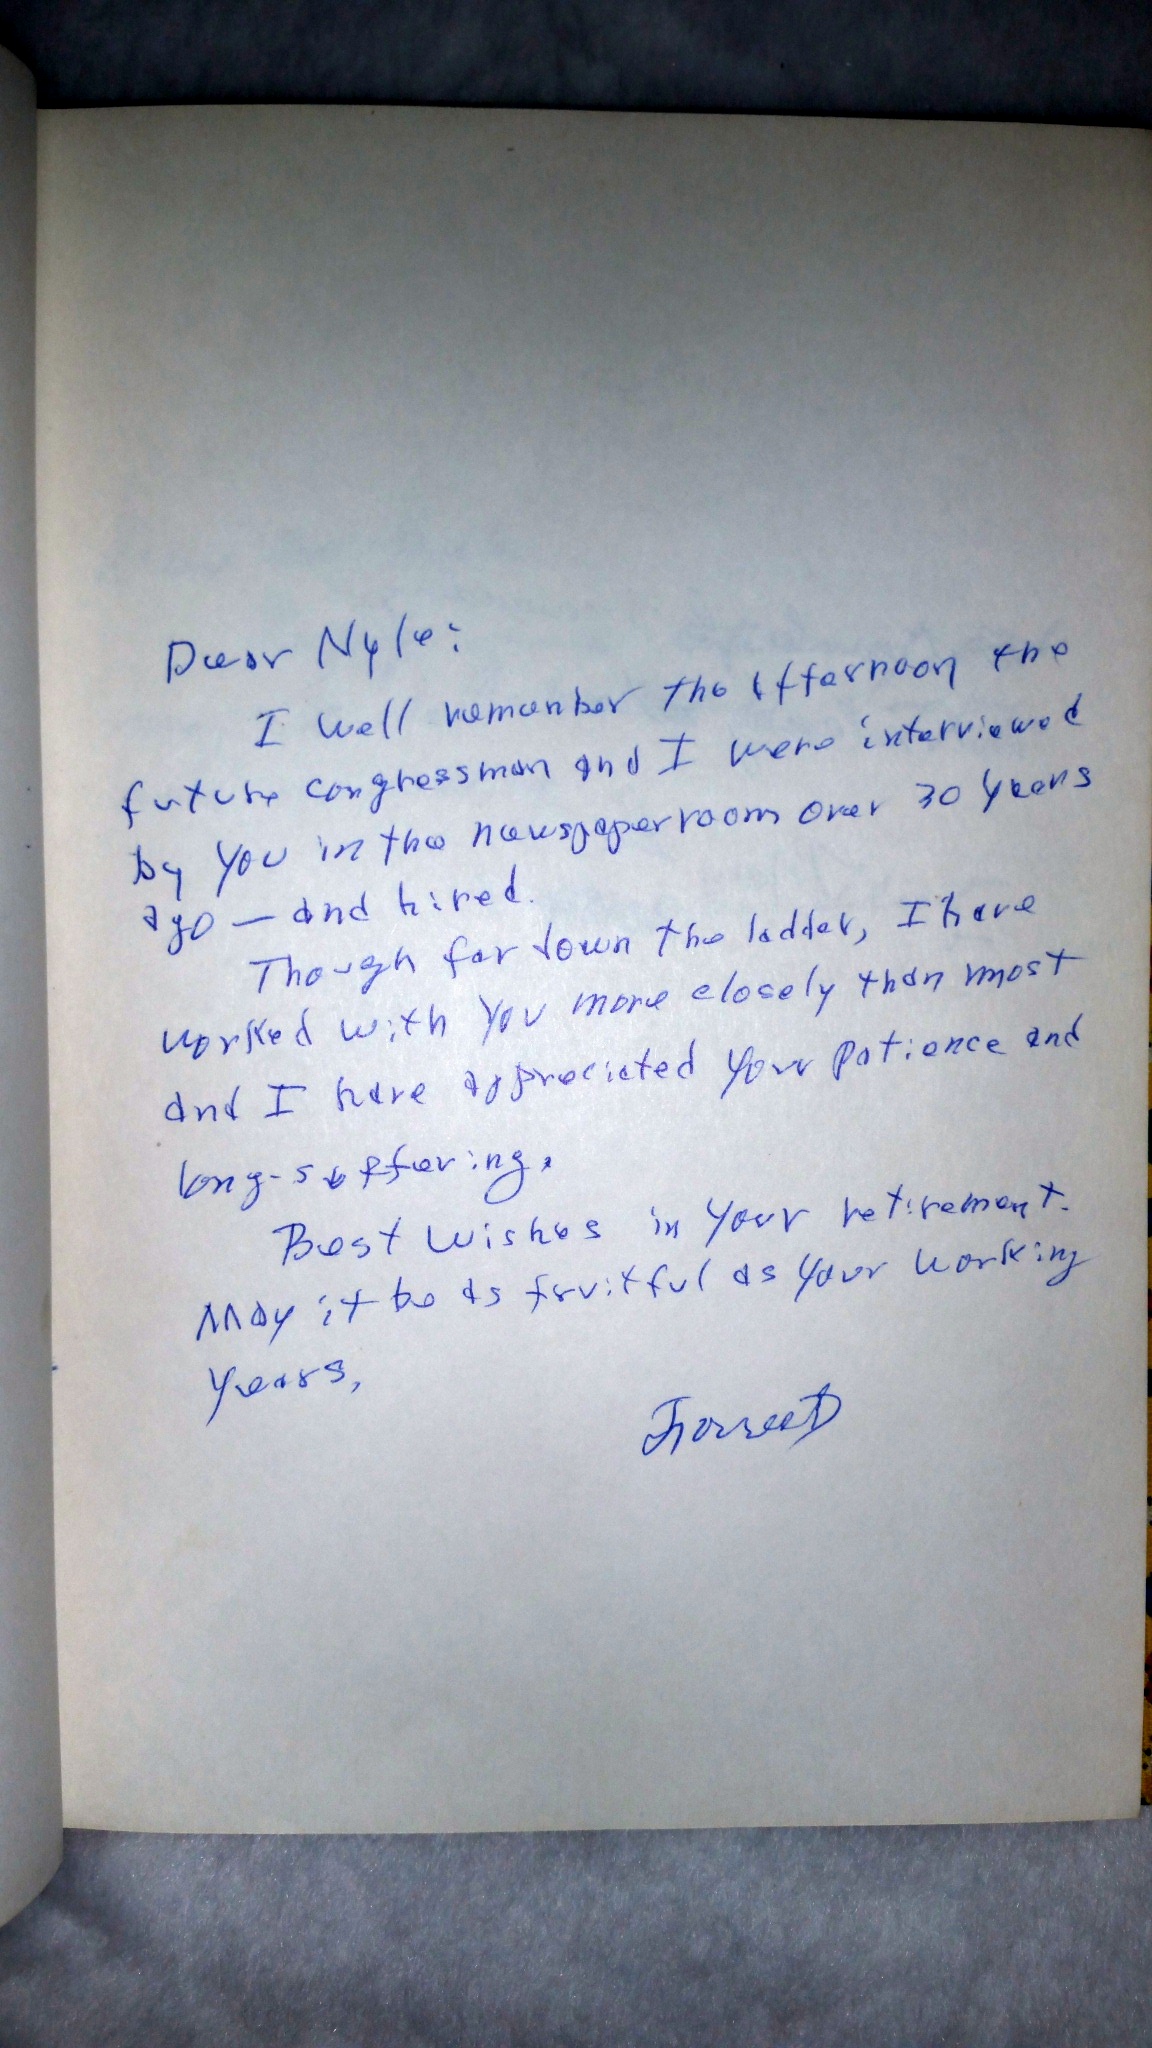 Dear Nyle:
I well remember the afternoon the
future congressman and I were interviewed
by you in the newspaper room over 30 years
ago — and hired.
Though far down the ladder, I have
worked with you more closely than most
and I have appreciated your patience and
long-suffering.
Best wishes in your retirement.
May it be as fruitful as your working
years.
Forrest